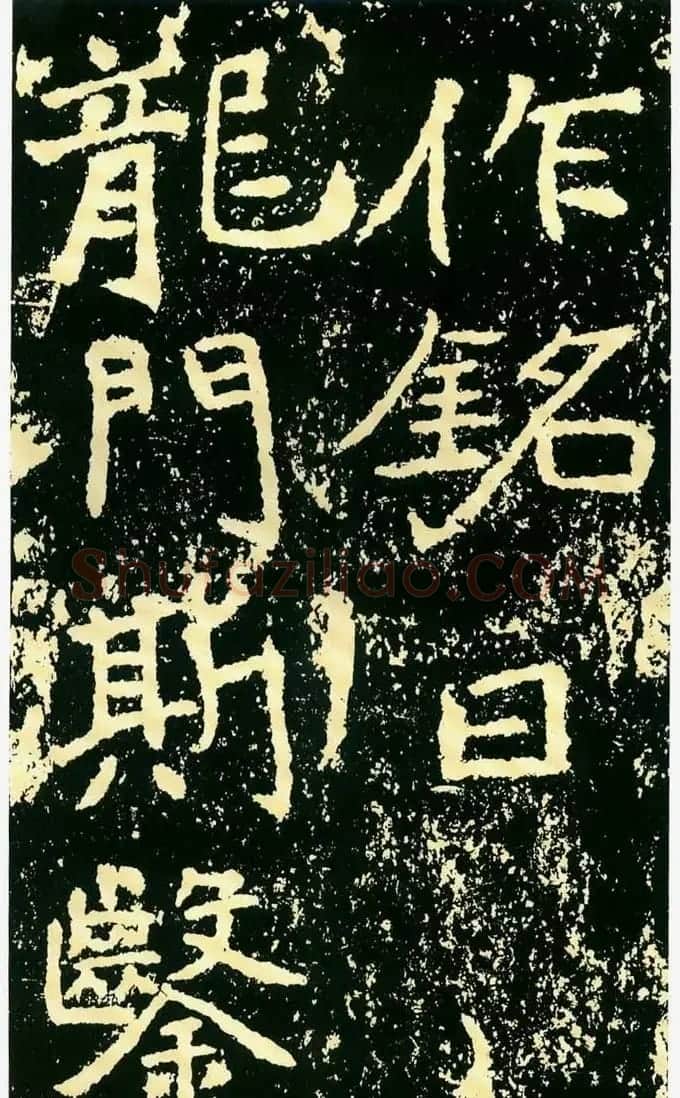 作銘曰
龍門斯鑿
Shufaziliao.COM